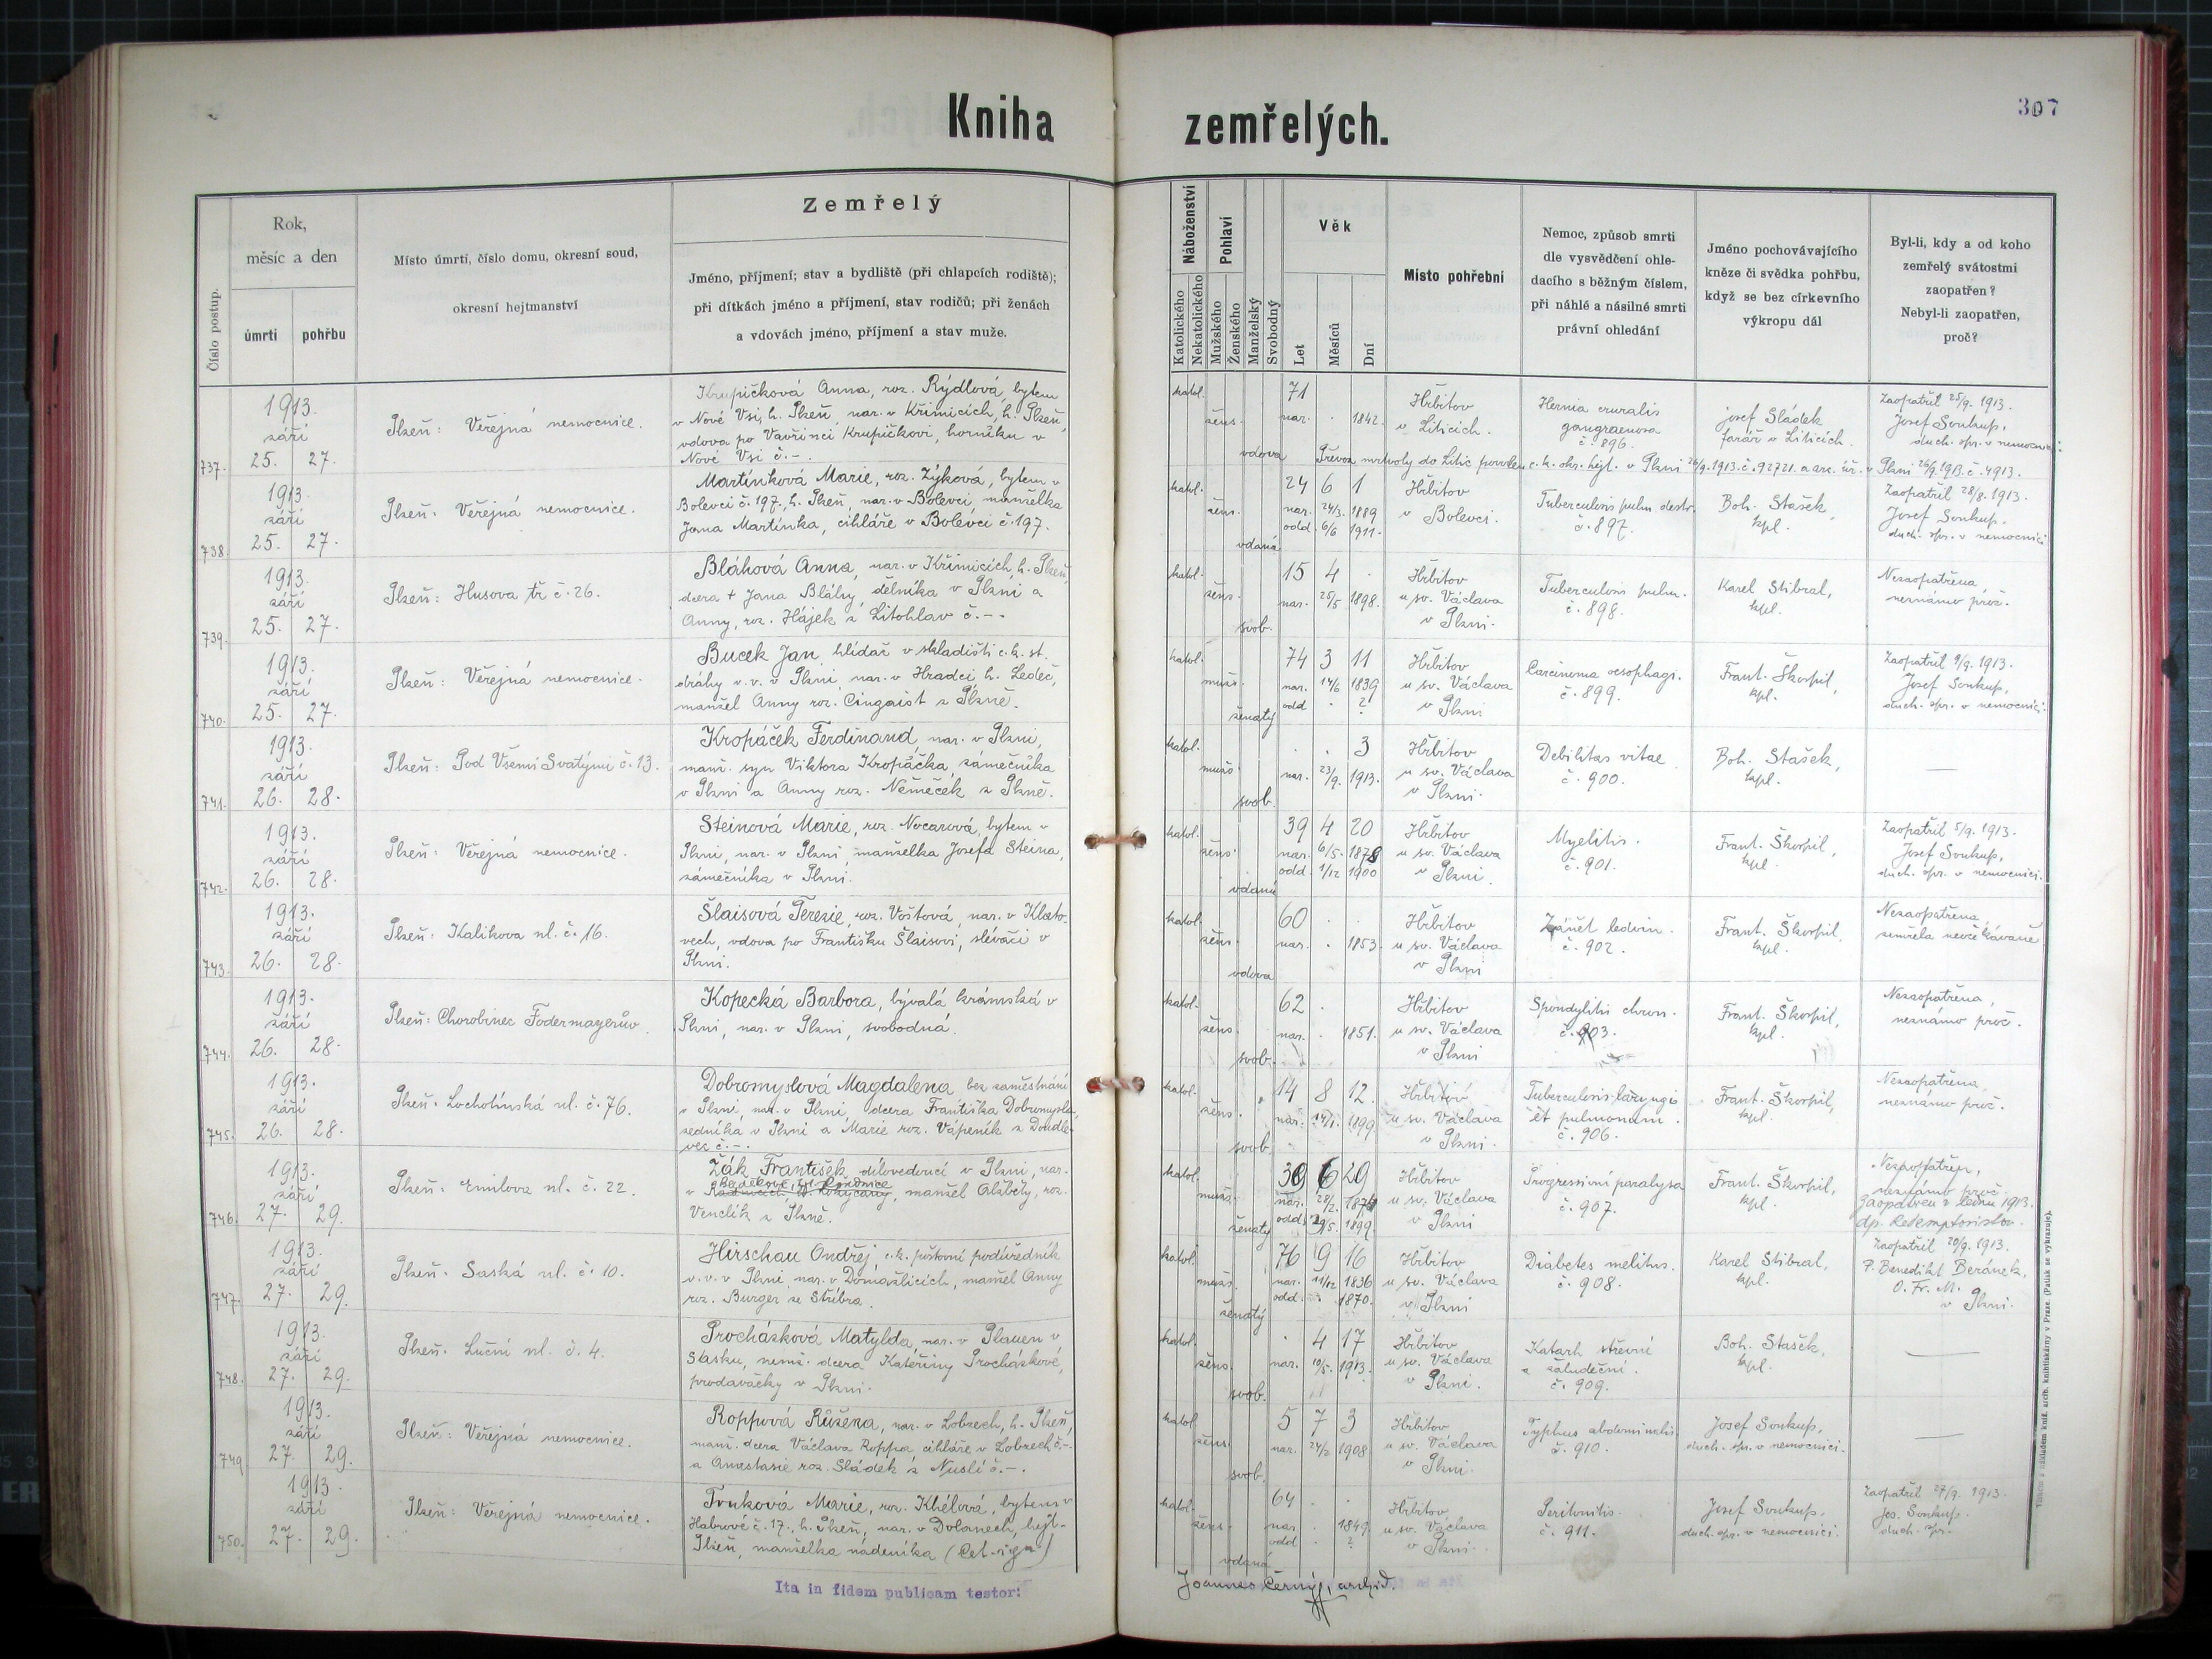 Kniha zemřelých.
307
Číslo postup.
Rok,
měsíc a den
úmrtí
pohřbu
Místo úmrtí, číslo domu, okresní soud,
okresní hejtmanství
Zemřelý
Jméno, příjmení; stav a bydliště (při chlapcích rodiště);
při dítkách jméno a příjmení, stav rodičů; při ženách
a vdovách jméno, příjmení a stav muže.
Náboženství
Katolického
Nekatolického
Pohlaví
Mužského
Ženského
Manželský
Svobodný
Věk
Let
Měsíců
Dní
Místo pohřební
Nemoc, způsob smrti
dle vysvědčení ohle-
dacího s běžným číslem,
při náhlé a násilné smrti
právní ohledání
Jméno pochovávajícího
kněze či svědka pohřbu,
když se bez církevního
výkropu dál
Byl-li, kdy a od koho
zemřelý svátostmi
zaopatřen?
Nebyl-li zaopatřen,
proč?
737.
1913.
září
25. 27.
Plzeň: Veřejná nemocnice.
Krupičková Anna, roz. Rýdlová, bytem
v Nové Vsi, h. Plzeň, nar. v Křimicích, h. Plzeň,
vdova po Vavřinci Krupičkovi, horníku v
Nové Vsi č. -.
katol.
žens.
vdova
71
nar. . 1842.
Hřbitov
v Liticích.
Hernia cruralis
gangraenosa
č. 896.
Josef Sládek
farář v Liticích.
Zaopatřil 25/9. 1913.
Josef Soukup,
duch. spr. v nemocnici
Převoz mrtvoly do Litic povolen c. k. okr. hejt. v Plzni 26/9. 1913. č. 92721. a arc. úř. v Plzni 26/9. 1913. č. 4913.
738.
1913.
září
25. 27.
Plzeň: Veřejná nemocnice.
Martínková Marie, roz. Zýková, bytem v
Bolevci č. 197., h. Plzeň, nar. v Bolevci, manželka
Jana Martínka, cihláře v Bolevci č. 197.
katol.
žens.
vdaná
24 6 1
nar. 24/3. 1889
odd. 6/6 1911.
Hřbitov
v Bolevci.
Tuberculosis pulm. destr.
č. 897.
Boh. Stašek,
kpl.
Zaopatřil 28/8. 1913.
Josef Soukup,
duch. spr. v nemocnici
739.
1913.
září
25. 27.
Plzeň: Husova tř. č. 26.
Bláhová Anna, nar. v Křimicích h. Plzeň,
dcera + Jana Bláhy, dělníka v Plzni a
Anny, roz. Hájek z Litohlav č. --
katol.
žens.
svob.
15 4 .
nar. 25/5 1898.
Hřbitov
u sv. Václava
v Plzni.
Tuberculosis pulm.
č. 898.
Karel Stibral,
kpl.
Nezaopatřena
neznámo proč.
740.
1913.
září
25. 27.
Plzeň: Veřejná nemocnice.
Bucek Jan, hlídač v skladišti c. k. st.
dráhy v. v. v Plzni, nar. v Hradci h. Ledeč,
manžel Anny roz. Cingaišt z Plzně.
katol.
mužs.
ženatý
74 3 11
nar. 14/6 1839
odd . ?
Hřbitov
u sv. Václava
v Plzni
Carcinoma oesophagi.
č. 899.
Frant. Škorpil,
kpl.
Zaopatřil 9/9. 1913.
Josef Soukup,
duch. spr. v nemocnici.
741.
1913.
září
26. 28.
Plzeň: Pod Všemi Svatými č. 13.
Kropáček Ferdinand, nar. v Plzni,
manž. syn Viktora Kropáčka, zámečníka
v Plzni a Anny roz. Němeček z Plzně.
katol.
mužs.
svob.
. . 3
nar. 23/9. 1913.
Hřbitov
u sv. Václava
v Plzni.
Debilitas vitae
č. 900.
Boh. Stašek,
kpl.
—
742.
1913.
září
26. 28.
Plzeň: Veřejná nemocnice.
Steinová Marie, roz. Nocarová, bytem v
Plzni, nar. v Plzni, manželka Josefa Steina,
zámečníka v Plzni.
katol.
žens.
vdaná
39 4 20
nar. 6/5. 1878
odd. 1/12 1900
Hřbitov
u sv. Václava
v Plzni.
Myelitis.
č. 901.
Frant. Škorpil,
kpl.
Zaopatřil 5/9. 1913.
Josef Soukup,
duch. spr. v nemocnici.
743.
1913.
září
26. 28.
Plzeň: Kalikova ul. č. 16.
Šlaisová Terezie, roz. Voštová, nar. v Klato-
vech, vdova po Františku Šlaisovi, slévači v
Plzni.
katol.
žens.
vdova
60 . .
nar. . 1853.
Hřbitov
u sv. Václava
v Plzni
Zánět ledvin.
č. 902.
Frant. Škorpil,
kpl.
Nezaopatřena,
zemřela neočekávaně
744.
1913.
září
26. 28.
Plzeň: Chorobinec Fodermayerův.
Kopecká Barbora, bývalá krámská v
Plzni, nar. v Plzni, svobodná.
katol.
žens.
svob.
62 .
nar. . 1851.
Hřbitov
u sv. Václava
v Plzni
Spondylitis chron.
č. 903.
Frant. Škorpil,
kpl.
Nezaopatřena,
neznámo proč.
745.
1913.
září
26. 28.
Plzeň: Locholínská ul. č. 76.
Dobromyslová Magdalena, bez zaměstnání
v Plzni, nar. v Plzni, dcera Františka Dobromysla
zedníka v Plzni a Marie roz. Vápeník z Doudle-
vec č. -.
katol.
žens.
svob.
14 8 12.
nar. 14/1. 1899
Hřbitov
u sv. Václava
v Plzni.
Tuberculosis laryngis
et pulmonum.
č. 906.
Frant. Škorpil,
kpl.
Nezaopatřena,
neznámo proč.
746.
1913.
září
27. 29.
Plzeň: Emilova ul. č. 22.
Žák František, dílovedoucí v Plzni, nar.
v Rokycany, manžel Alžběty, roz.
Venclík z Plzně.
katol.
mužs.
ženatý
39 6 29
nar. 28/2. 1874
odd. 29/5. 1899.
Hřbitov
u sv. Václava
v Plzni
Progressivní paralysa
č. 907.
Frant. Škorpil,
kpl.
Nezaopatřen,
neznámo proč.
Zaopatřen v lednu 1913.
dp. Redemptoristou.
747.
1913.
září
27. 29.
Plzeň: Saská ul. č. 10.
Hirschau Ondřej, c. k. poštovní podúředník
v. v. v Plzni, nar. v Domažlicích, manžel Anny
roz. Burger ze Stříbra.
katol.
mužs.
ženatý
76 9 16
nar. 11/12 1836
odd. . 1870.
Hřbitov
u sv. Václava
v Plzni
Diabetes melitus.
č. 908.
Karel Stibral,
kpl.
Zaopatřil 20/9. 1913.
P. Benedikt Beránek,
O. Fr. M.
v Plzni.
748.
1913.
září
27. 29.
Plzeň: Luční ul. č. 4.
Procházková Matylda, nar. v Plauen v
Sasku, nemž. dcera Kateřiny Procházkové,
prodavačky v Plzni.
katol.
žens.
svob.
. 4 17
nar. 10/5. 1913.
Hřbitov
u sv. Václava
v Plzni.
Katarh střevní
a žaludeční.
č. 909.
Boh. Stašek,
kpl.
—
749.
1913.
září
27. 29.
Plzeň: Veřejná nemocnice.
Roppová Růžena, nar. v Lobzech, h. Plzeň,
manž. dcera Václava Roppa cihláře v Lobzech č. -.
a Anastasie roz. Sládek z Nuslí č. -.
katol.
žens.
svob.
5 7 3
nar. 24/2 1908
Hřbitov
u sv. Václava
v Plzni.
Typhus abdominalis
č. 910.
Josef Soukup,
duch. spr. v nemocnici.
—
750.
1913.
září
27. 29.
Plzeň: Veřejná nemocnice.
Touková Marie, roz. Khélová, bytem v
Habrové č. 17., h. Plzeň, nar. v Dolanech, hejt-
Plzeň, manželka nádeníka
katol.
žens.
vdaná
64 . .
nar . 1849.
odd . ?
Hřbitov
u sv. Václava
v Plzni.
Peritonitis.
č. 911.
Josef Soukup,
duch. spr. v nemocnici.
Zaopatřil 27/9. 1913.
Jos. Soukup.
duch. spr.
Ita in fidem publicam testor:
Joannes Černý, archid.